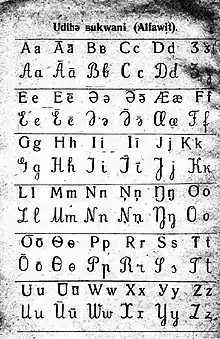 Udihə вukwani (Alfawit).
Aa Āā Bв Cc Dd Ʒʒ
Aa Āā Bв Cc Dd Ʒʒ
Ee Ēē Əə Ə̄ə̄ Ææ Ff
Ee Ēē Əə Ə̄ə̄ Ææ Ff
Gg Hh Ii Īī Jj Kk
Gg Hh Ii Īī Jj Kk
Ll Mm Nn Ņņ Ŋŋ Oo
Ll Mm Nn Ņņ Ŋŋ Oo
Ōō Ɵɵ Pp Rr Ss Tt
Ōō Ɵɵ Pp Rr Ss Tt
Uu Ūū Ww Xx Yy Zz
Uu Ūū Ww Xx Yy Zz